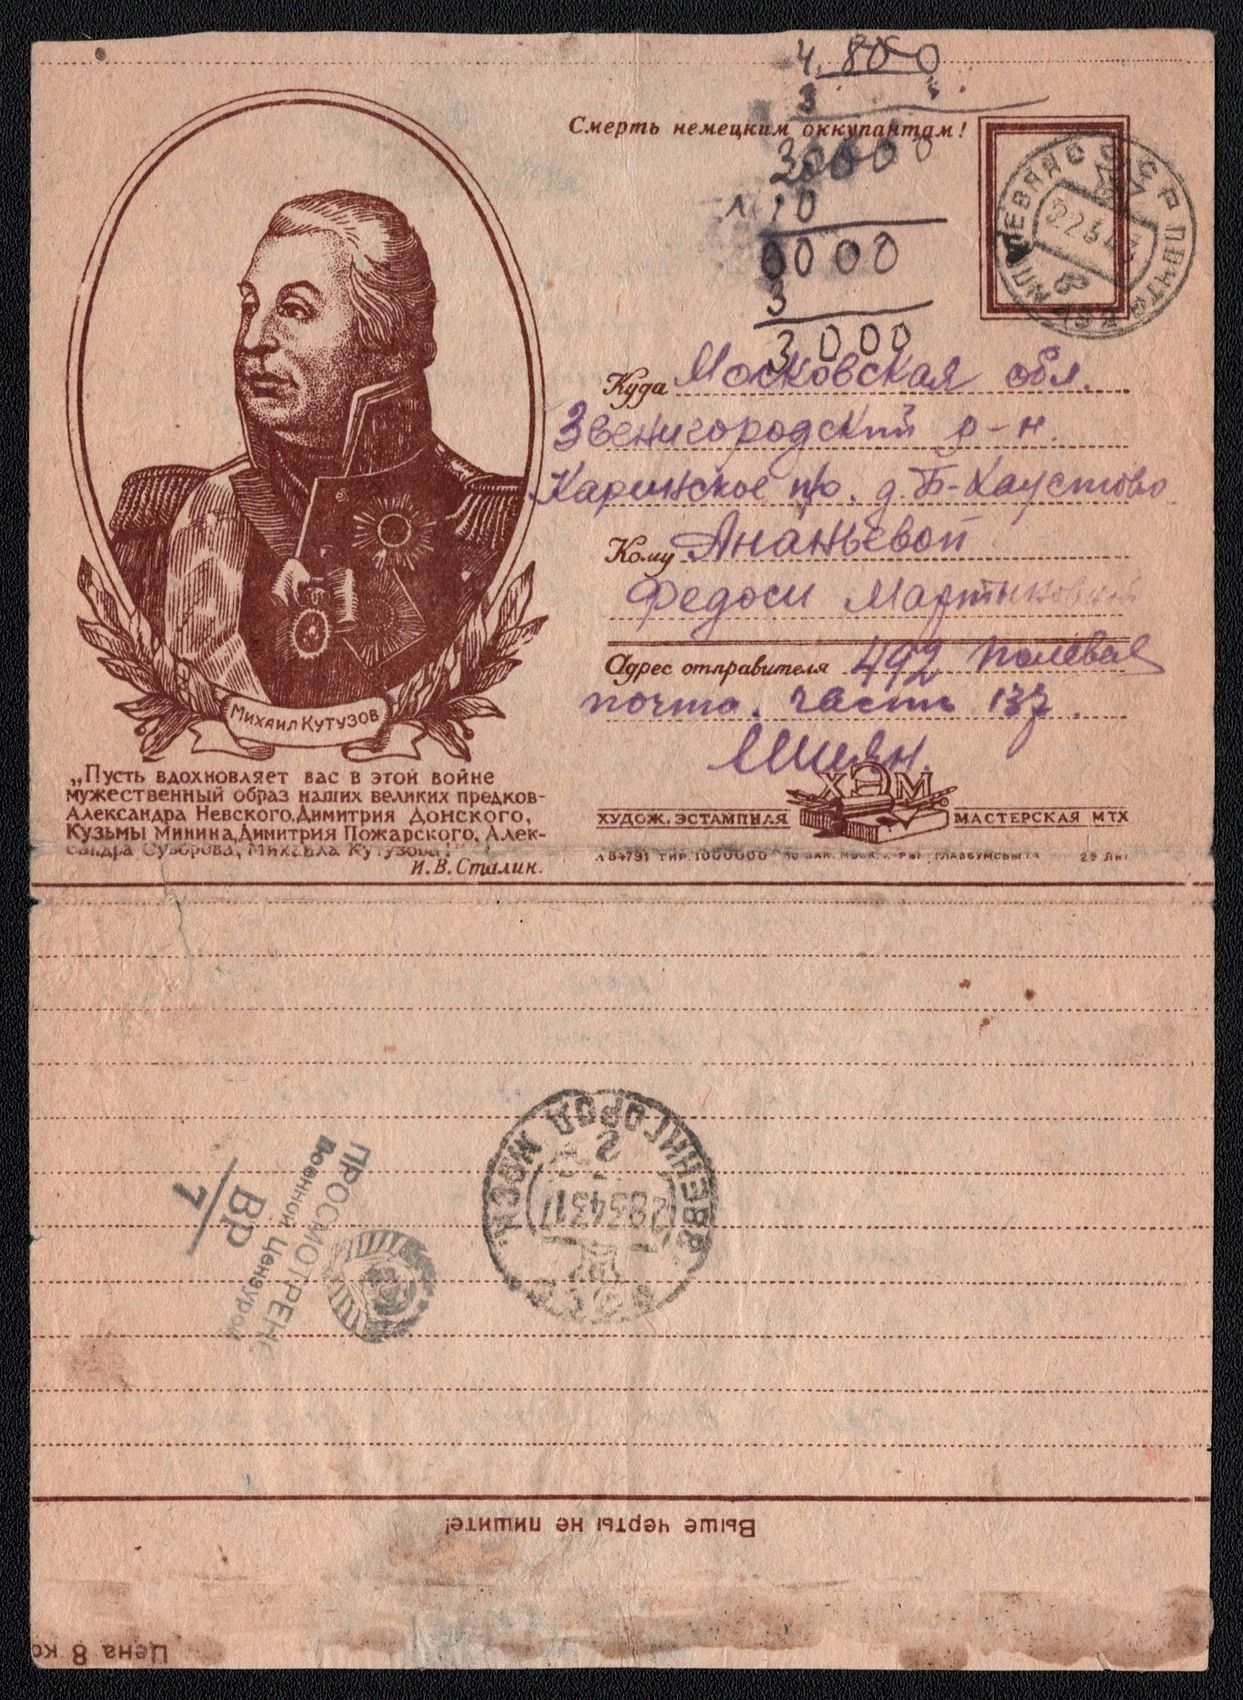 4.800
3
Смерть немецким оккупантам!
30000
10
0000
3
3000
Куда Московская обл.
Звенигородский р-н.
Каринское п/о. д. Б-Хаустово
Кому Ананьевой
Федоси Мартыновны
Адрес отправителя 492 полевая
почто. часть 137.
МИХАИЛ КУТУЗОВ
„Пусть вдохновляет вас в этой войне
мужественный образ наших великих предков-
Александра Невского, Димитрия Донского,
Кузьмы Минина, Димитрия Пожарского, Алек-
сандра Суворова, Михаила Кутузова!"
И.В.Сталин.
ХЭМ
ХУДОЖ. ЭСТАМПНАЯ МАСТЕРСКАЯ МТХ
Л84791 ТИР. 1000000
ПОЧТА
ЗВЕНИГОРОД МОСК.
28343
СССР
ПРОСМОТРЕНО
Военной Цензурой
ВР
7
Выше черты не пишите!
Цена 8 ко